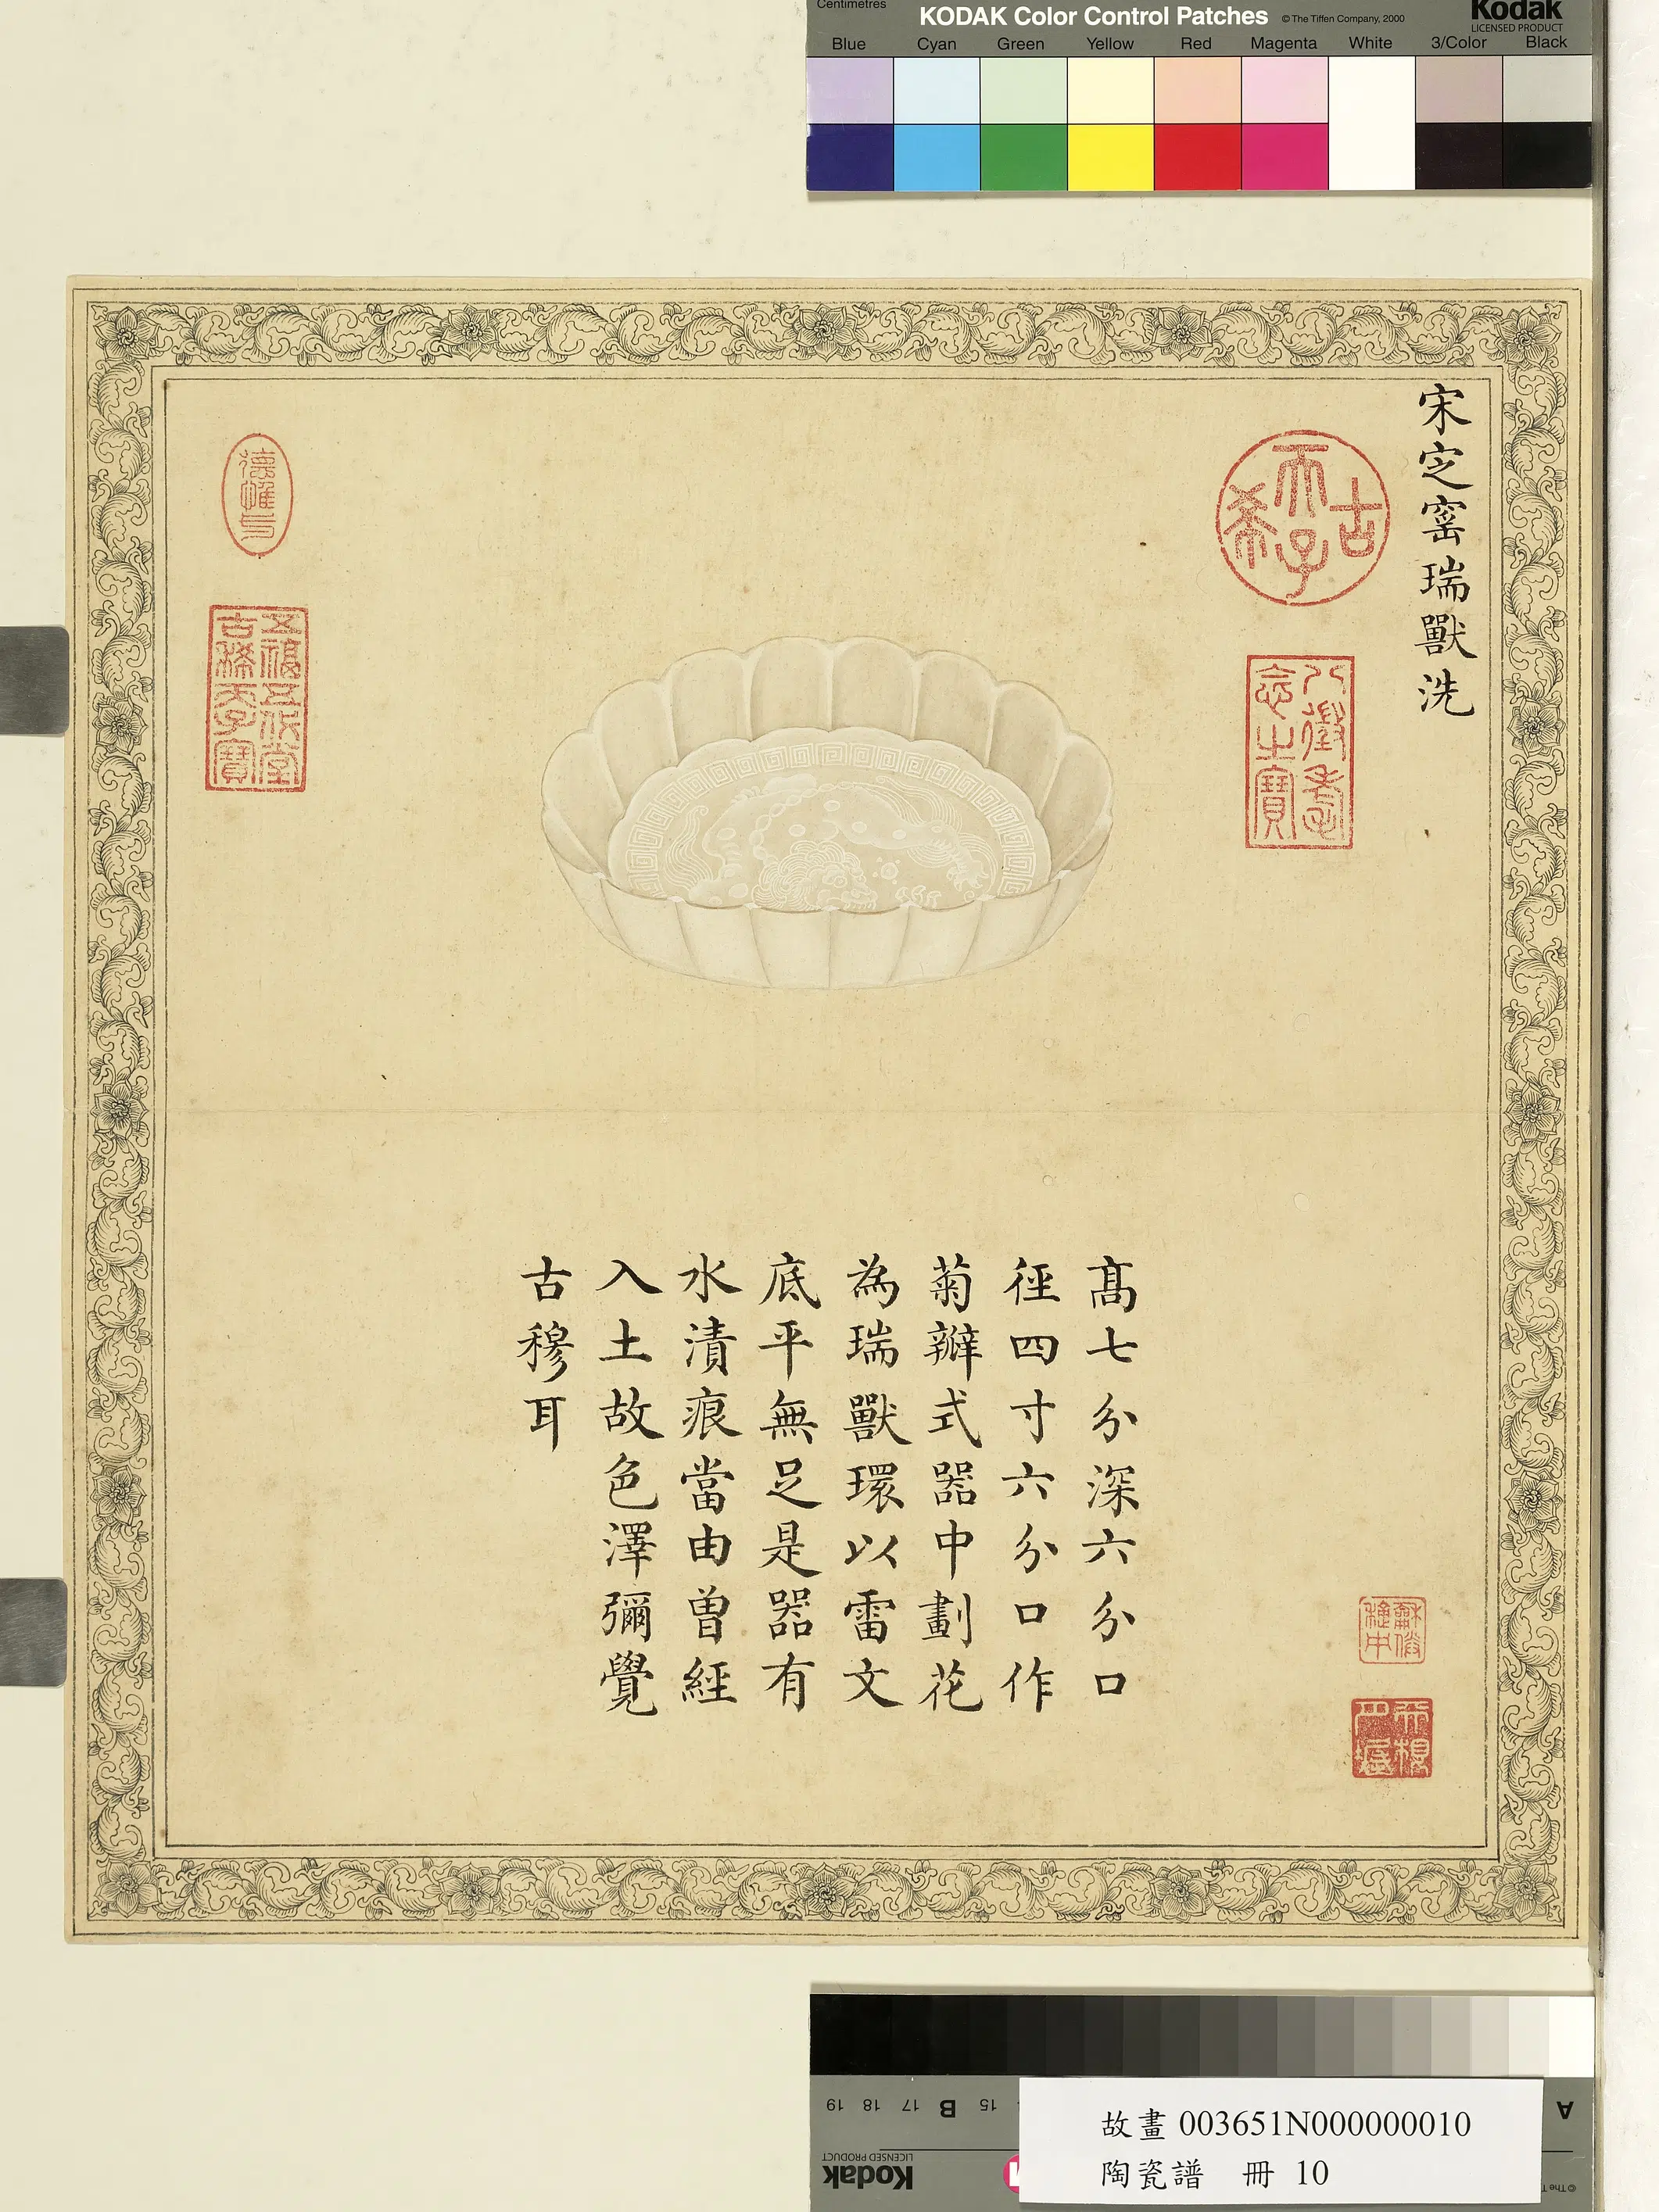 Centimetres
KODAK Color Control Patches © The Tiffen Company, 2000
Kodak
LICENSED PRODUCT
Blue Cyan Green Yellow Red Magenta White 3/Color Black
宋定窰瑞獸洗
古
天子
希
八徵耄
念之寶
五福五代堂
古稀天子寶
高七分深六分口
徑四寸六分口作
菊瓣式器中劃花
為瑞獸環以雷文
底平無足是器有
水漬痕當由曾經
入土故色澤彌覺
古穆耳
19 18 17 B 15
A
Kodak
LICENSED PRODUCT
故畫 003651N000000010
陶瓷譜 冊 10